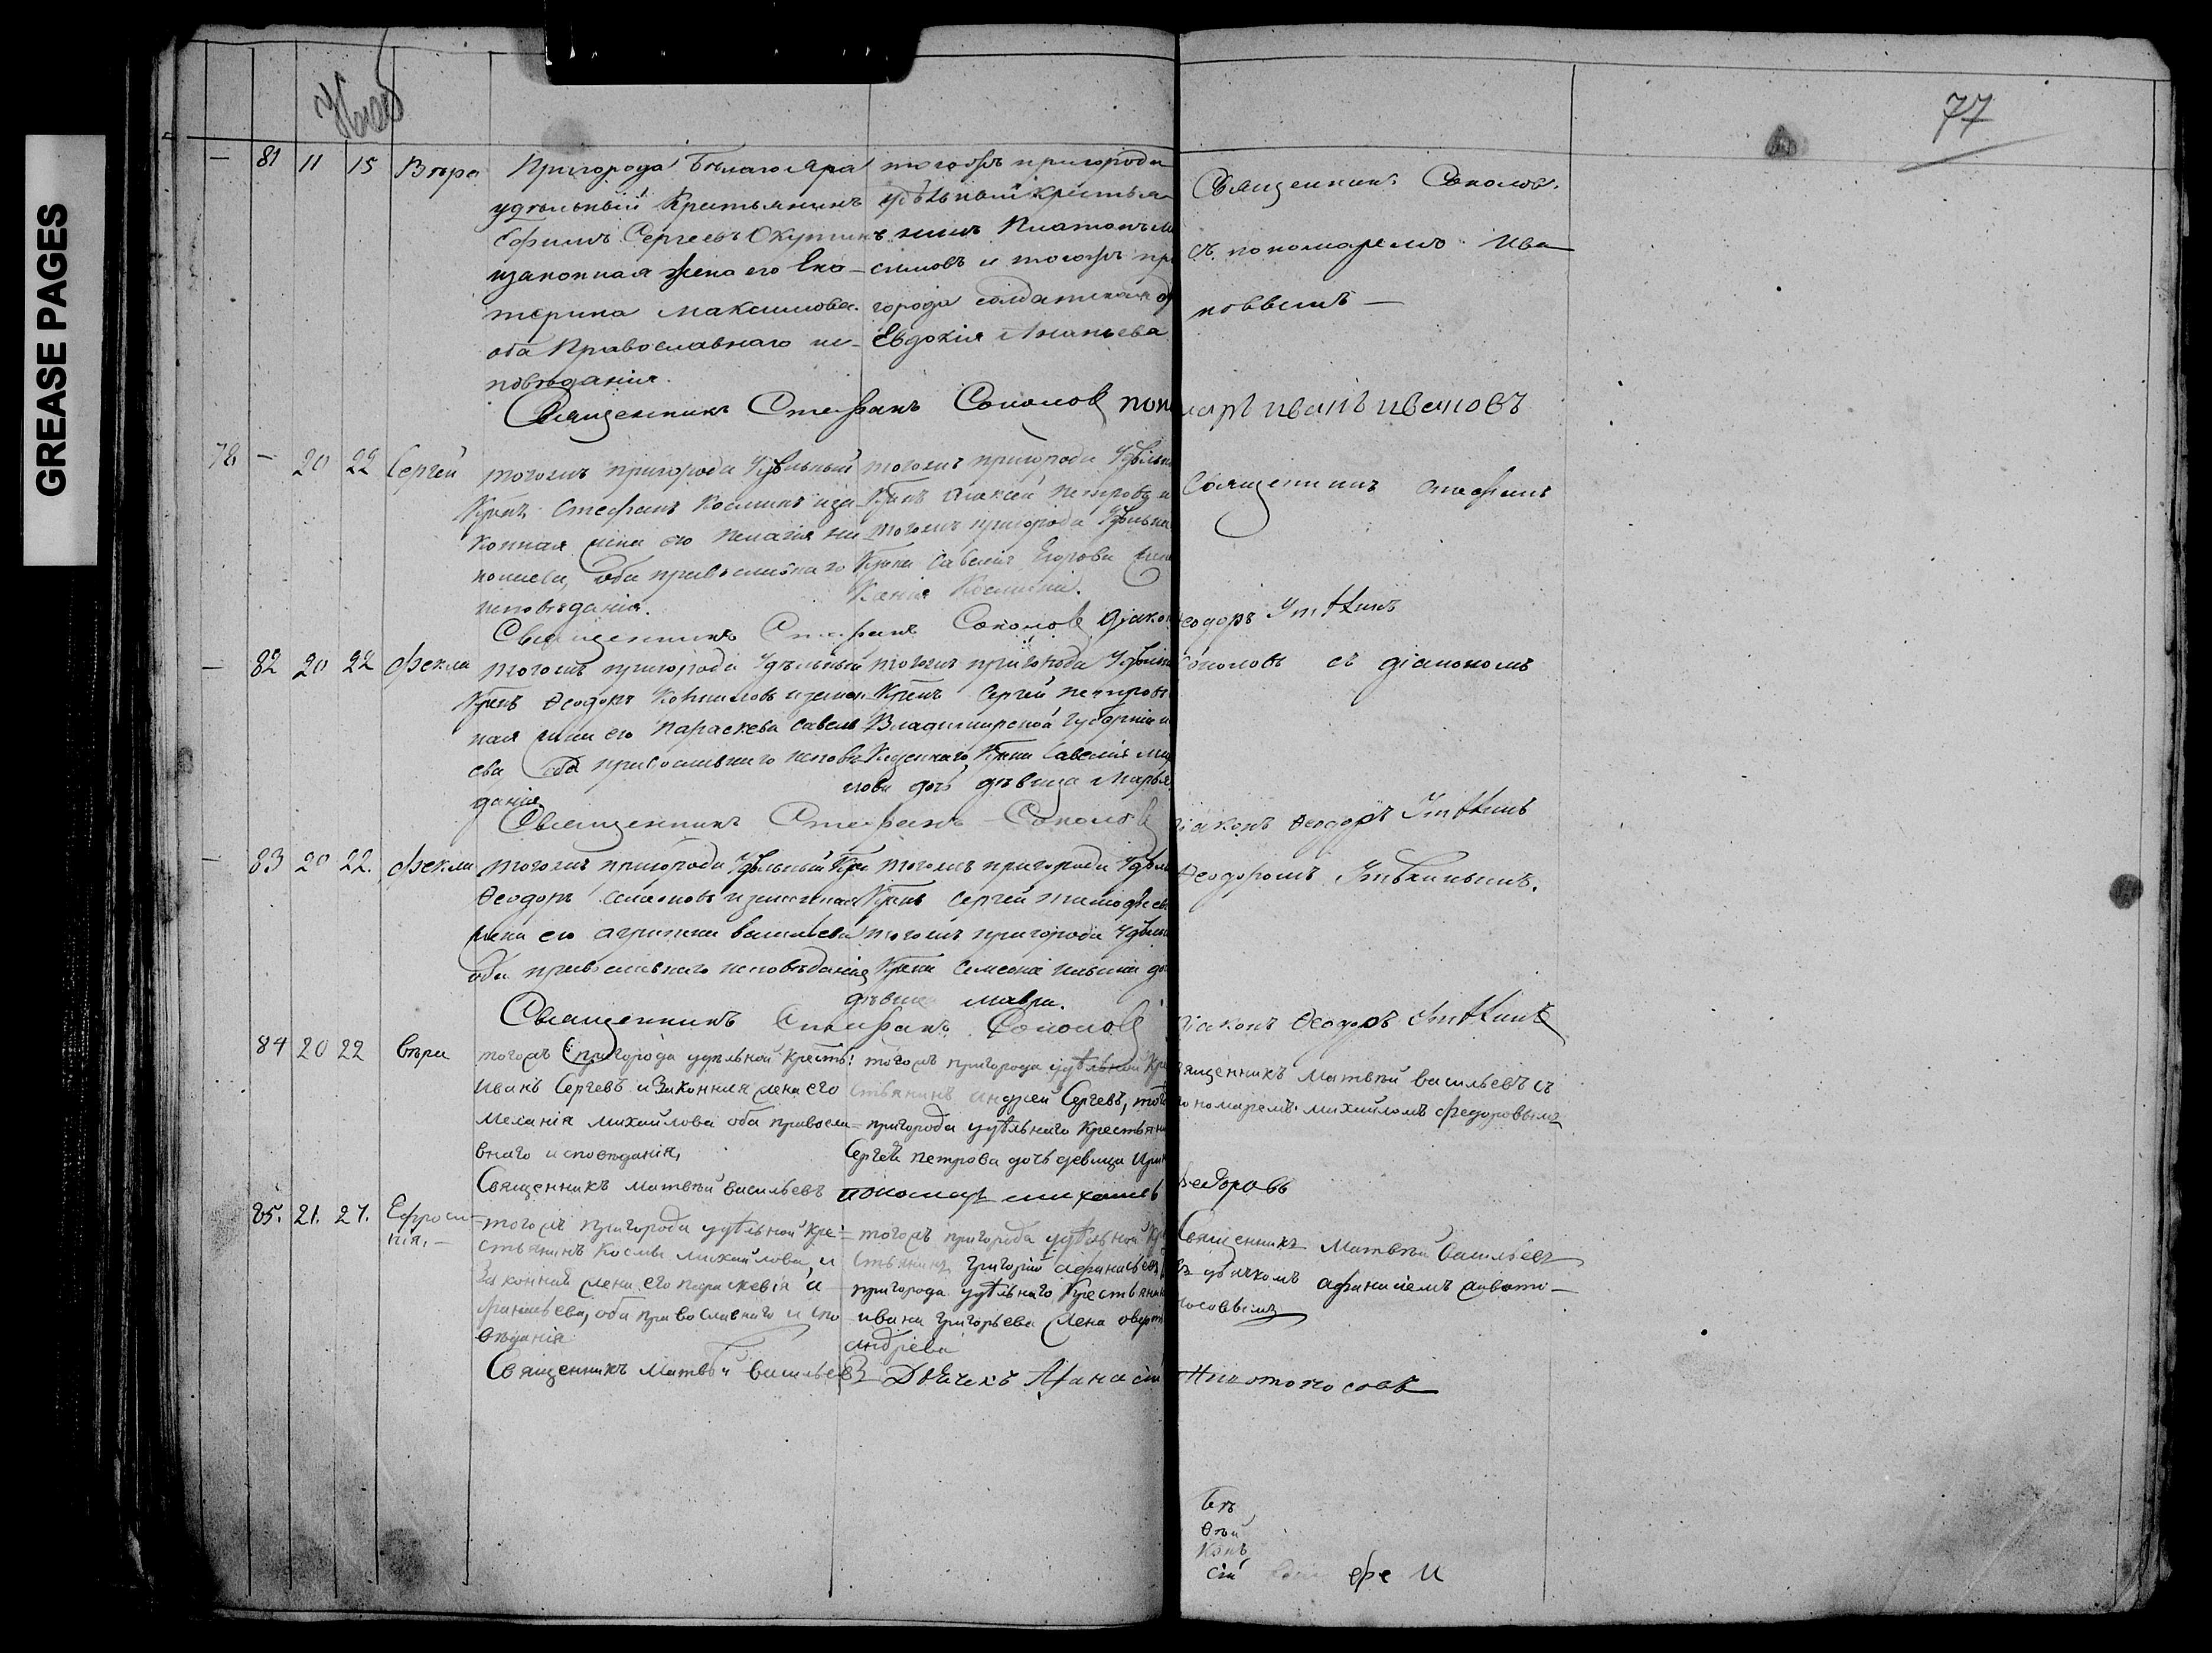 GREASE PAGES
77
— 81 11 15 Вѣра
Пригорода Бѣлаго Яра
удѣльный Крестьянинъ
Ефимъ Сергеевъ Окутинъ
изаконная жена его Ека-
терина Максимова.
оба Православнаго ис-
повѣданія.
тогожъ пригорода
удѣльный крестья-
нинъ Платонъ М
симовъ и тогожъ пр
города солдатская
Евдокія Ананьева
Священникъ Соколов.
съ пономаремъ Ива
новымъ —
Священникъ Стефанъ Соколов пономарь иванъ ивановъ
78 — 20 22 Сергей
тогожъ пригорода Удѣльный
Крнъ Стефанъ Косминъ иза
конная жена его Пелагія Ни
колаева, оба православнаго
исповѣданія.
тогожъ пригорода Удѣльн
Крнъ Алексей Петровъ и
тогожъ пригорода Удѣльна
Крна Савелія Егорова жена
Ксенія Космина.
Священникъ Стефанъ
Священникъ Стефанъ Соколов діакон Ѳеодоръ Утѣкинъ
— 82 20 22 Фекла
тогожъ пригорода Удѣльный
Крнъ Ѳеодоръ изакон
ная жена его Параскева Савель
ева оба православнаго исповѣ
данія
тогожъ пригорода Удѣльн
Крнъ Сергей Петровъ
Владимирской Губерніи
Крна Савелія
дочь дѣвица Марья
Соколовъ съ діакономъ
Священникъ Стефанъ Соколов діаконъ Ѳеодоръ Утѣкинъ
— 83 20 22. Фекла
тогожъ пригорода Удѣльный Крн
Ѳеодоръ изаконная
жена его Агрипина Васильева
оба православнаго исповѣданія
тогожъ пригорода Удѣль
Крнъ Сергей Тимофеев
тогожъ пригорода Удѣльн
Крна Симеона Ильина до
дѣвица Мавра.
Ѳеодоромъ Утѣкинымъ.
Священникъ Стефанъ Соколов діаконъ Ѳеодоръ Утѣкинъ
84 20 22 Вѣра
тогожъ пригорода удѣльной Кресть:
Иванъ Сергевъ и Законная жена его
Меланія Михайлова оба правосла-
внаго исповѣданія,
тогожъ пригорода удѣльной Кре
стьянинъ Андрей Сергевъ, того
пригорода удѣльнаго Крестьяни
Сергея Петрова дочь девица Ирин
Священникъ Матвѣй Васильевъ съ
пономаремъ Михайломъ Федоровымъ
Священникъ Матвѣй Васильевъ пономарь михаилъ Федоровъ
85. 21. 27. Ефроси-
нія. —
тогожъ пригорода удѣльной Кре-
стьянинъ Косма Михайлова, и
Законная жена его Параскевія А
фанасьева, оба православнаго испо
вѣданія
тогожъ пригорода удѣльной Кр
стьянинъ Григорій Афанасьевъ
пригорода удѣльнаго Крестьянин
Ивана Григорьева жена
Андрева
Священникъ Матвѣй Васильевъ
съ дьячкомъ Афанасіемъ Живото-
носовымъ
Священникъ Матвѣй Васильевъ Дьячекъ Афанасій Животоносовъ